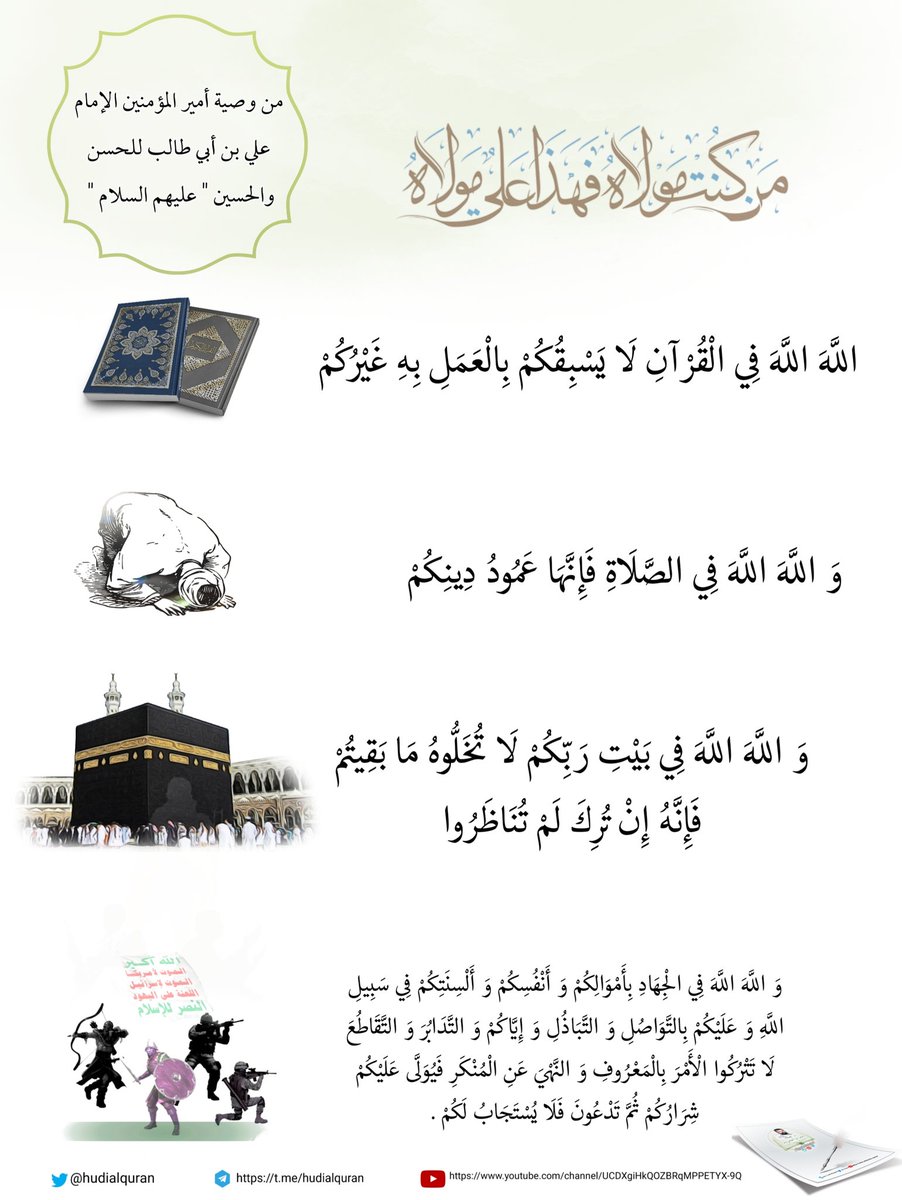 من وصية أمير المؤمنين الإمام
علي بن أبي طالب للحسن
والحسين " عليهم السلام "
مَن كُنتُ مَولَاهُ فَهَذَا عَلِيٌّ مَولَاهُ
اللَّهَ اللَّهَ فِي الْقُرْآنِ لَا يَسْبِقُكُمْ بِالْعَمَلِ بِهِ غَيْرُكُمْ
وَ اللَّهَ اللَّهَ فِي الصَّلَاةِ فَإِنَّهَا عَمُودُ دِينِكُمْ
وَ اللَّهَ اللَّهَ فِي بَيْتِ رَبِّكُمْ لَا تُخَلُّوهُ مَا بَقِيتُمْ
فَإِنَّهُ إِنْ تُرِكَ لَمْ تُنَاظَرُوا
الله أكبر
الموت لأمريكا
الموت لإسرائيل
اللعنة على اليهود
النصر للإسلام
وَ اللَّهَ اللَّهَ فِي الْجِهَادِ بِأَمْوَالِكُمْ وَ أَنْفُسِكُمْ وَ أَلْسِنَتِكُمْ فِي سَبِيلِ
اللَّهِ وَ عَلَيْكُمْ بِالتَّوَاصُلِ وَ التَّبَاذُلِ وَ إِيَّاكُمْ وَ التَّدَابُرَ وَ التَّقَاطُعَ
لَا تَتْرُكُوا الْأَمْرَ بِالْمَعْرُوفِ وَ النَّهْيَ عَنِ الْمُنْكَرِ فَيُوَلَّى عَلَيْكُمْ
شِرَارُكُمْ ثُمَّ تَدْعُونَ فَلَا يُسْتَجَابُ لَكُمْ .
@hudialquran
https://t.me/hudialquran
https://www.youtube.com/channel/UCDXgiHkQOZBRqMPPETYX-9Q